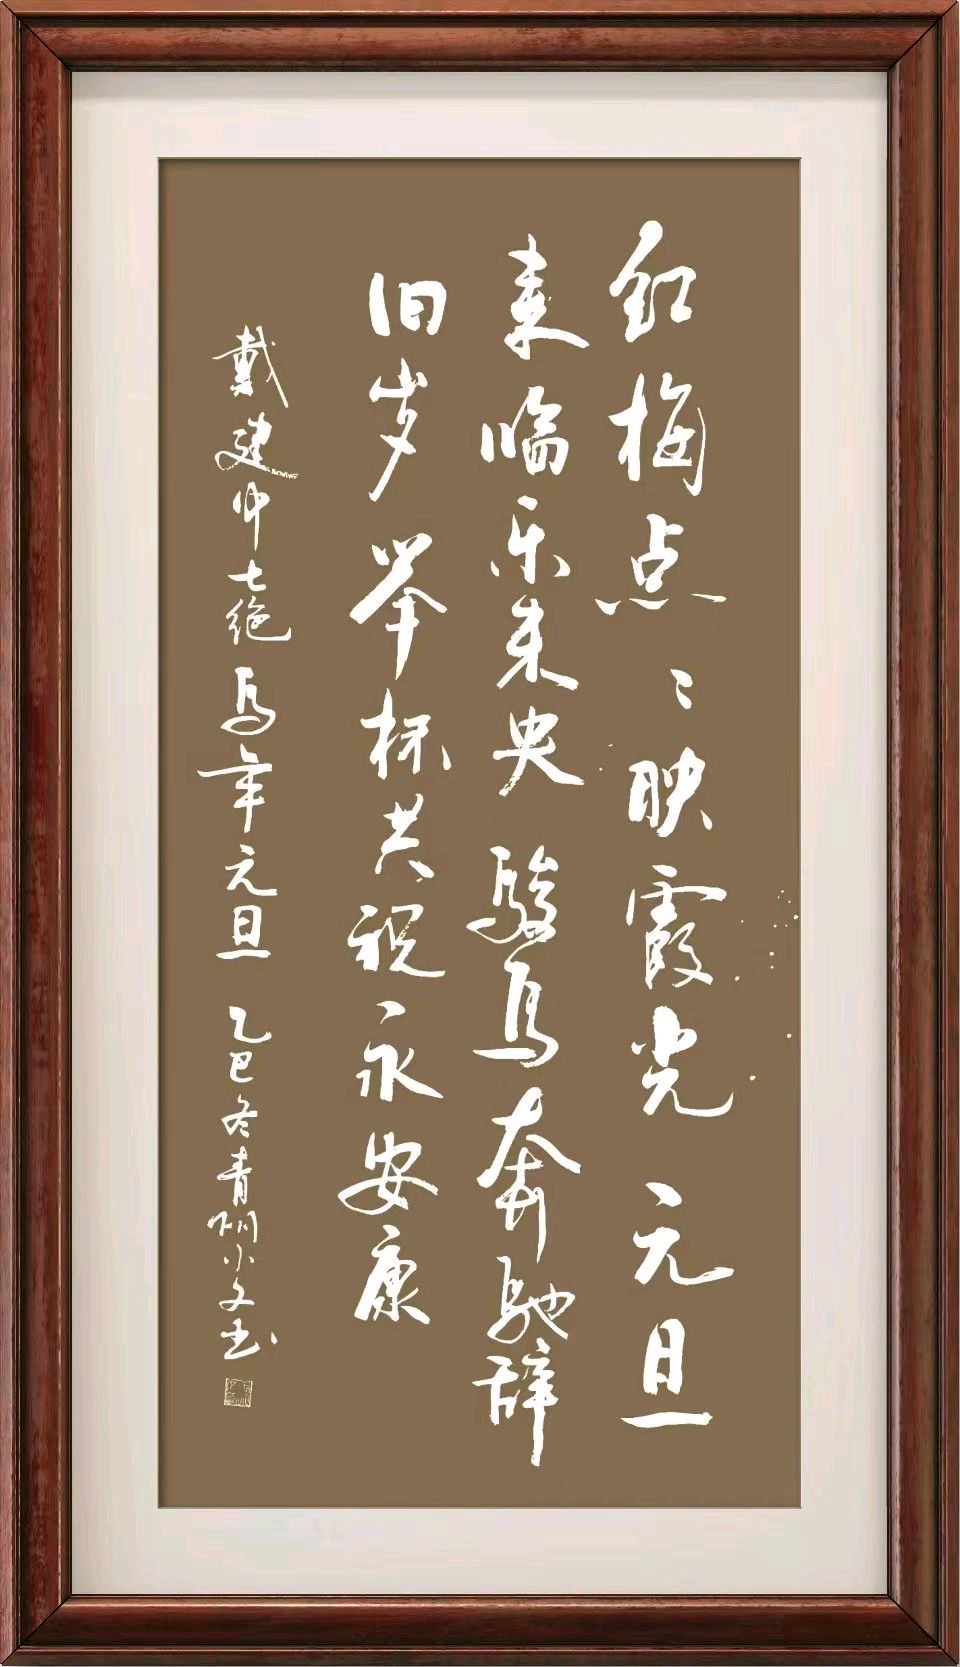 红梅点〻映霞光元旦
来临乐未央骏马奔驰辞
旧岁举杯共祝永安康
戴建中七绝马年元旦乙巳冬青川小文书